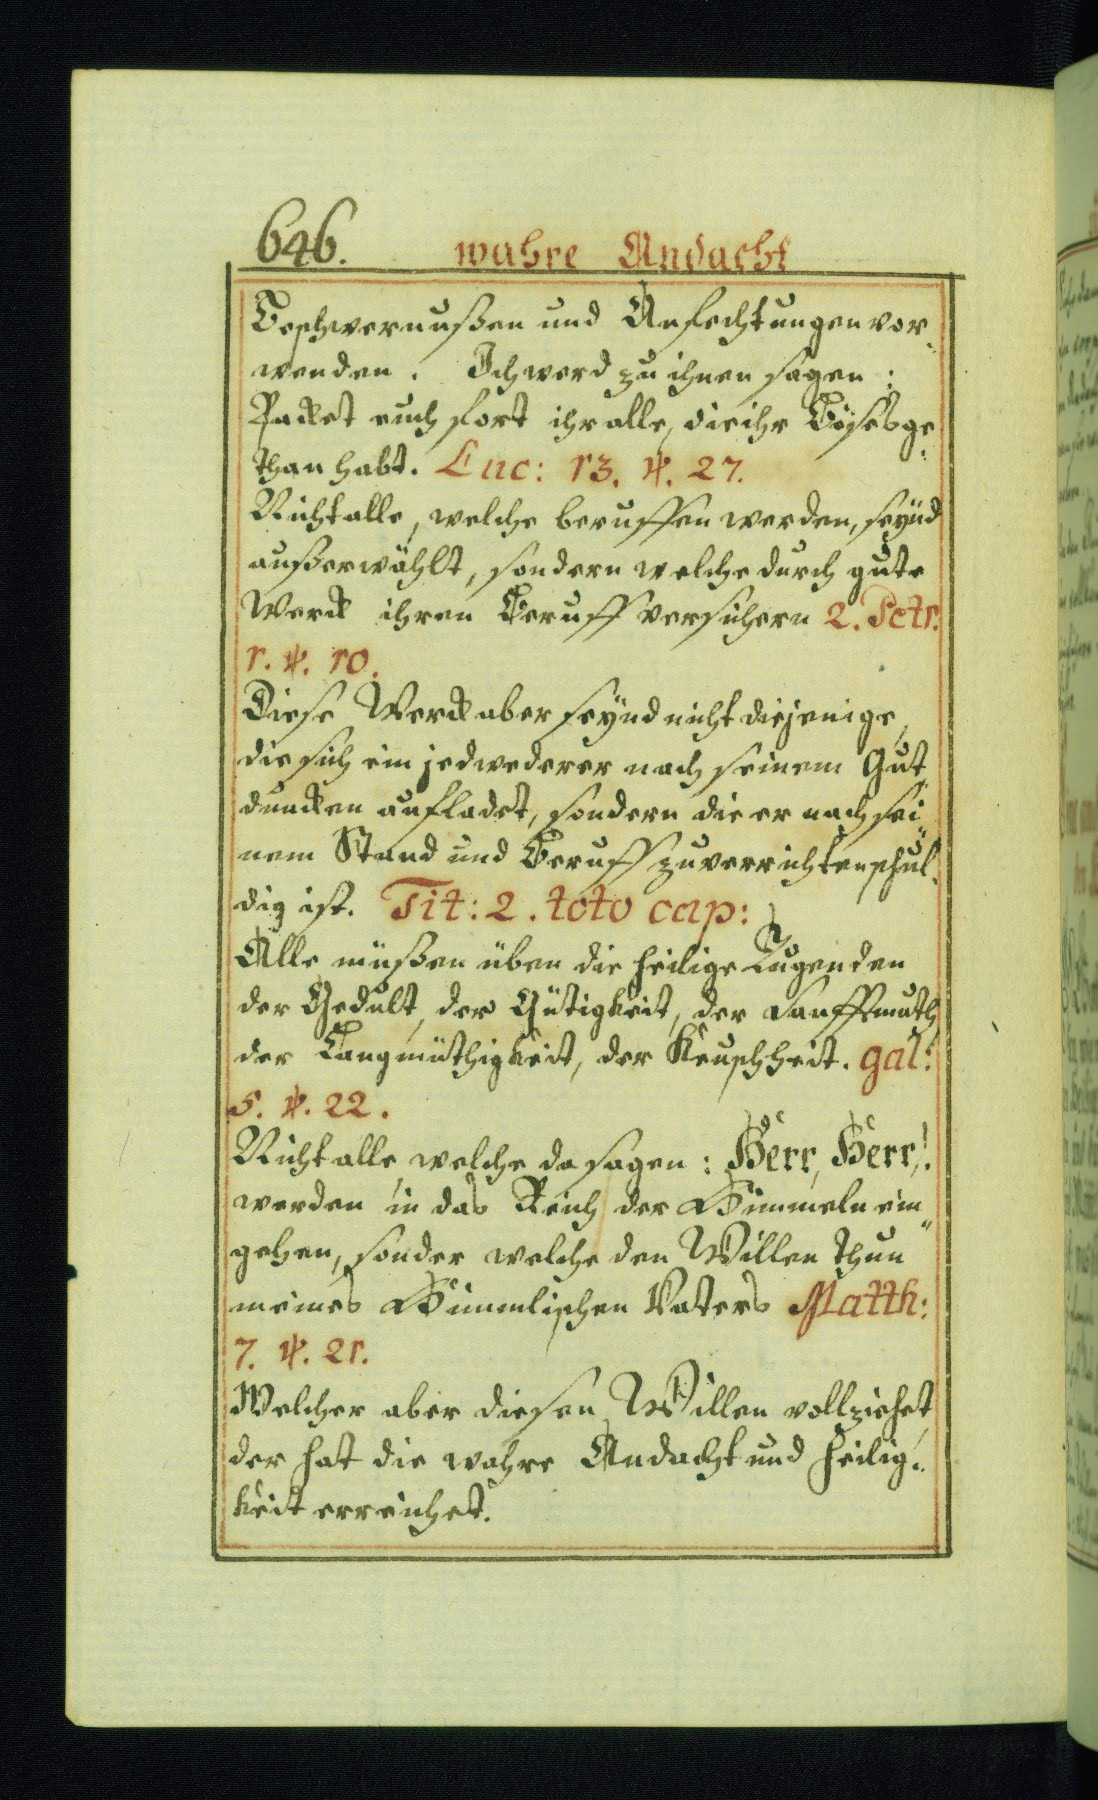 646. wahre Andacht
Beschwernußen und Anfechtungen vor-
wenden. Ich werd zu ihnen sagen:
Packet euch fort ihr alle, die ihr Böses ge-
than habt. Luc: 13. ℣. 27.
Nicht alle, welche beruffen werden, seynd
außerwählt, sondern welche durch gute
Werck ihren Beruff versichern 2. Petr.
1. ℣. 10.
Diese Werck aber seynd nicht diejenige,
die sich ein jedwederer nach seinem Gut-
duncken aufladet, sondern die er nach sei-
nem Stand und Beruff zu verrichten schul-
dig ist. Tit: 2. toto cap:
Alle müßen üben die heilige Tugenden
der Gedult, der Gütigkeit, der Sanfftmuth
der Langmüthigkeit, der Keuschheit. gal:
5. ℣. 22.
Nicht alle welche da sagen: Herr, Herr,!
werden in das Reich der Himmeln ein-
gehen, sonder welche den Willen thun
meines Himmlischen Vaters Matth:
7. ℣. 21.
Welcher aber diesen Willen vollziehet,
der hat die wahre Andacht und heilig-
keit erreichet.